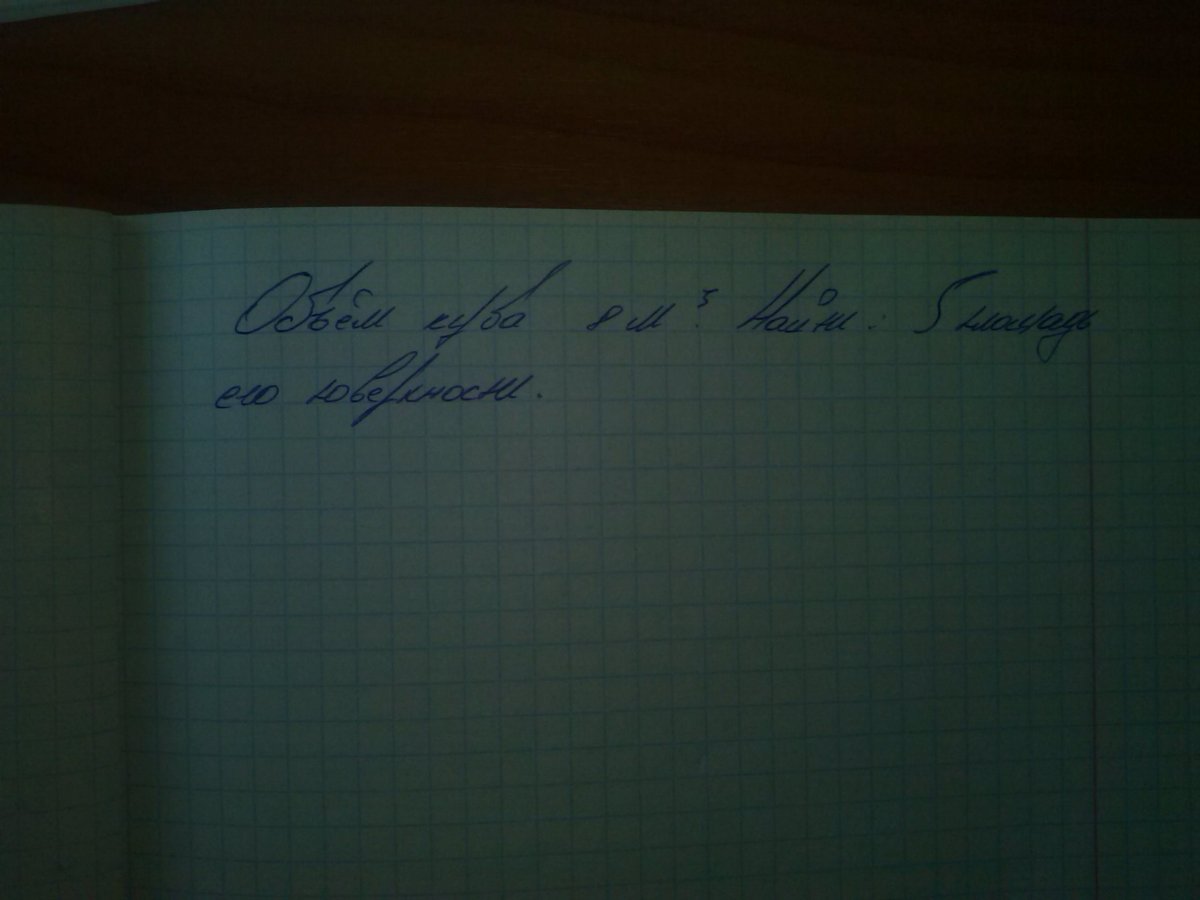 Объём куба 8 м³. Найти: S площадь
его поверхности.